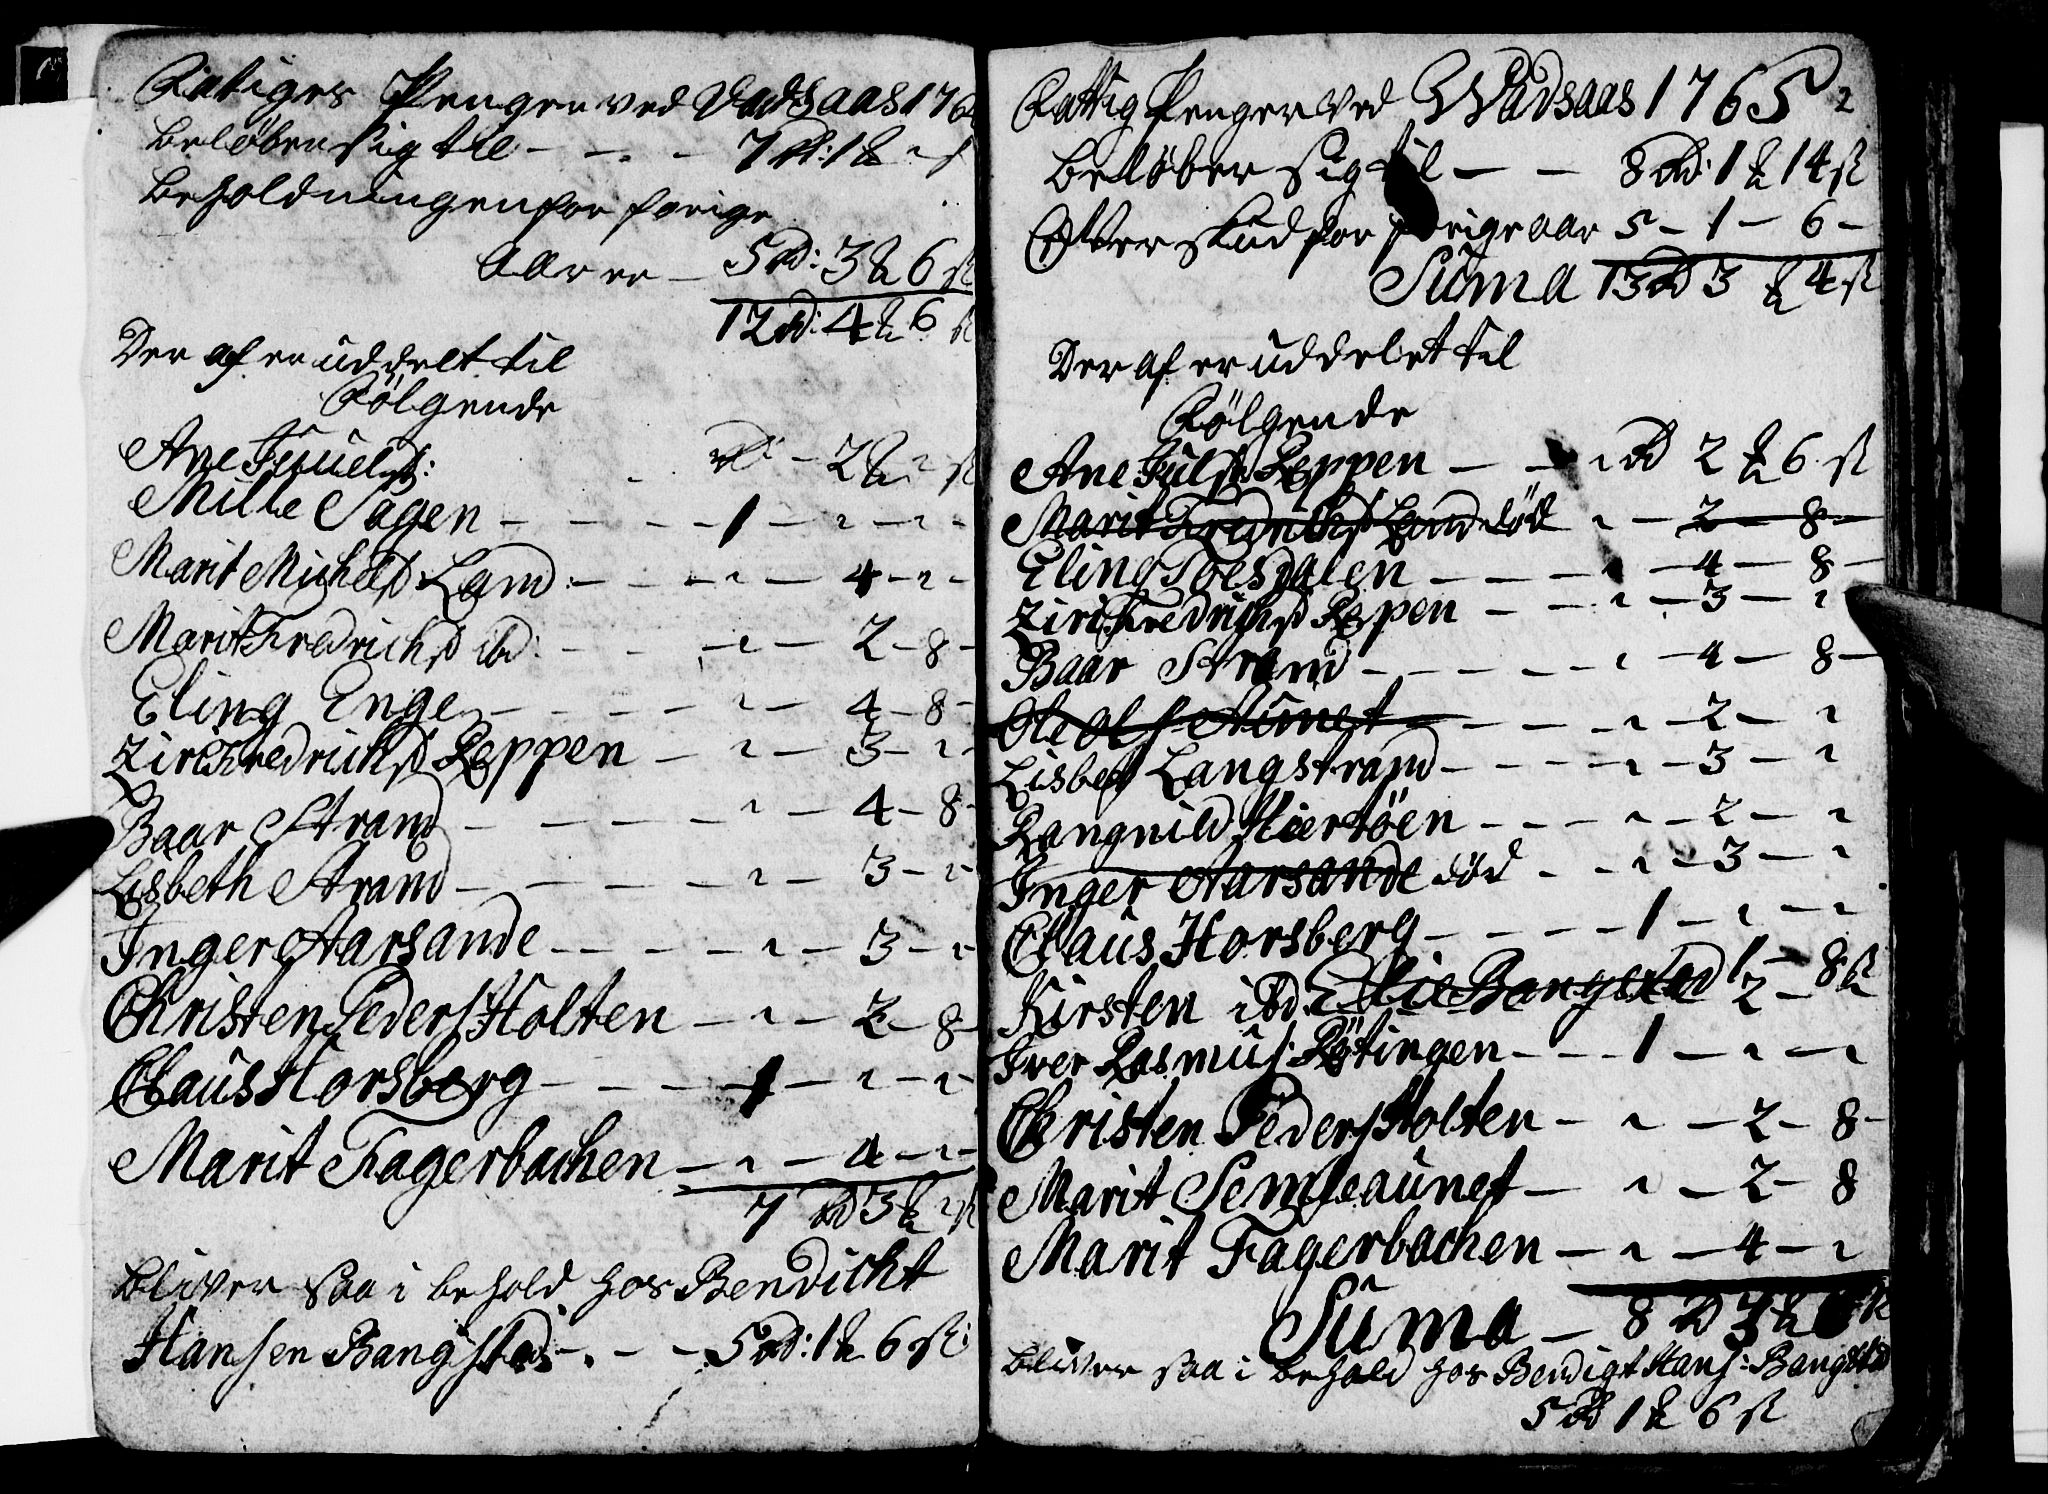 Fatiges Penger ved Vadsaas 176
beløben sig til - - - 7 rd: 1 £ " ſ
beholdningen for forige
Aar er - 5 rd: 3 £ 6 ſk
12 rd: 4 £ 6 ſk
Der af er uddelt til
Følgende
Ane Juuelsd: rd: - 2 £ " ſk
Mille Sagen - - - - 1 - " - " -
Marit Michelsd Land: - - - " - 4 - " -
Marit Fredrichsd ibd: - - - " - 2 - 8 -
Eling Enge - - - - " - 4 - 8 -
Ziri Fredrichsd Leppen - " - 3 - " -
Baar Strand - - - - " - 4 - 8 -
Lisbeth Strand - - - - " - 3 - " -
Inger Aarsande - - - - " - 3 - " -
Christen Peders Holten - " - 2 - 8 -
Claus Horsberg - - - - 1 - " - " -
Marit Fagerbachen - " - 4 - " -
7 rd 3 £ " ſk
bliver saa i behold hos Bendicht
Hansen Bangstad: - - 5 rd: 1 £ 6 ſk:
Fattig Penger ved Wadsaas 1765 2
beløber sig til - - 8 rd: 1 £ 14 ſk
Over skud for forige aar 5 - 1 - 6 -
Suma 13 rd 3 £ 4 ſk
Der af er uddelet til
Følgende
Ane Julsd Leppen - - " rd 2 £ 6 ſk
Marit Fredrichsd Land død " - 2 - 8 -
Eling Toesdalen - - - - " - 4 - 8 -
Ziri Fredrichsd Leppen - - - " - 3 - "
Baar Strand - - - - - " - 4 - 8 -
Ole Ols Aunet - - - " - 2 - "
Lisbet Langstrand - - - - " - 3 - "
Rangnild Hiertøen - - - " - 2 - "
Inger Aarsande død - - " - 3 - "
Claus Horsberg - - - - 1 - " - "
Kirsten ibd. Elie Bangstad 1 - 2 - 8 ſk
Iver Rasmus: Røtingen - - - 1 - " - "
Christen Peders Holten - " - 2 - 8 -
Marit Semseaunet - " - 2 - 8
Marit Fagerbachen - " - 4 - "
Suma - 8 rd 3 £ ſk
bliver saa i behold hos Bendigt Hans: Bangstad
5 rd 1 £ 6 ſk